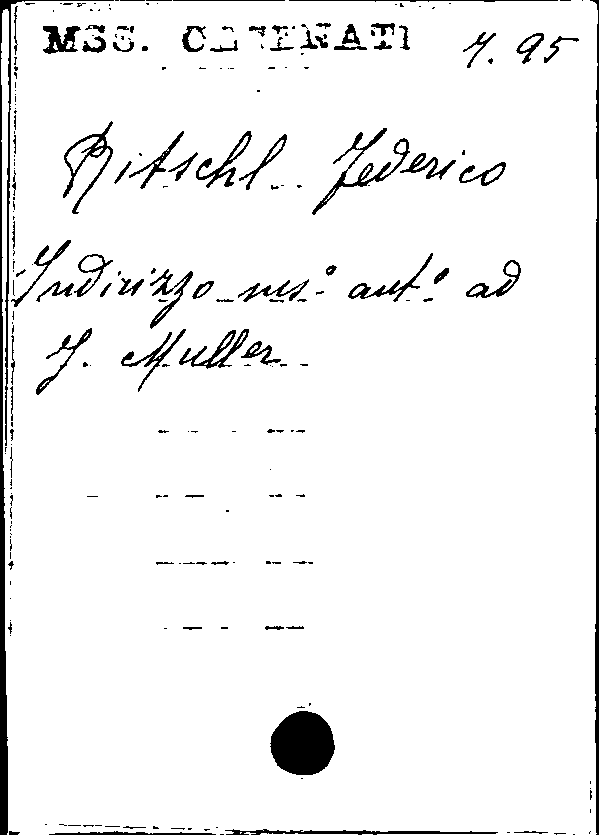 MSS. CEVENATI
7.95
Ritschl Federico
Indirizzo ms.º aut.º ad
J. Muller